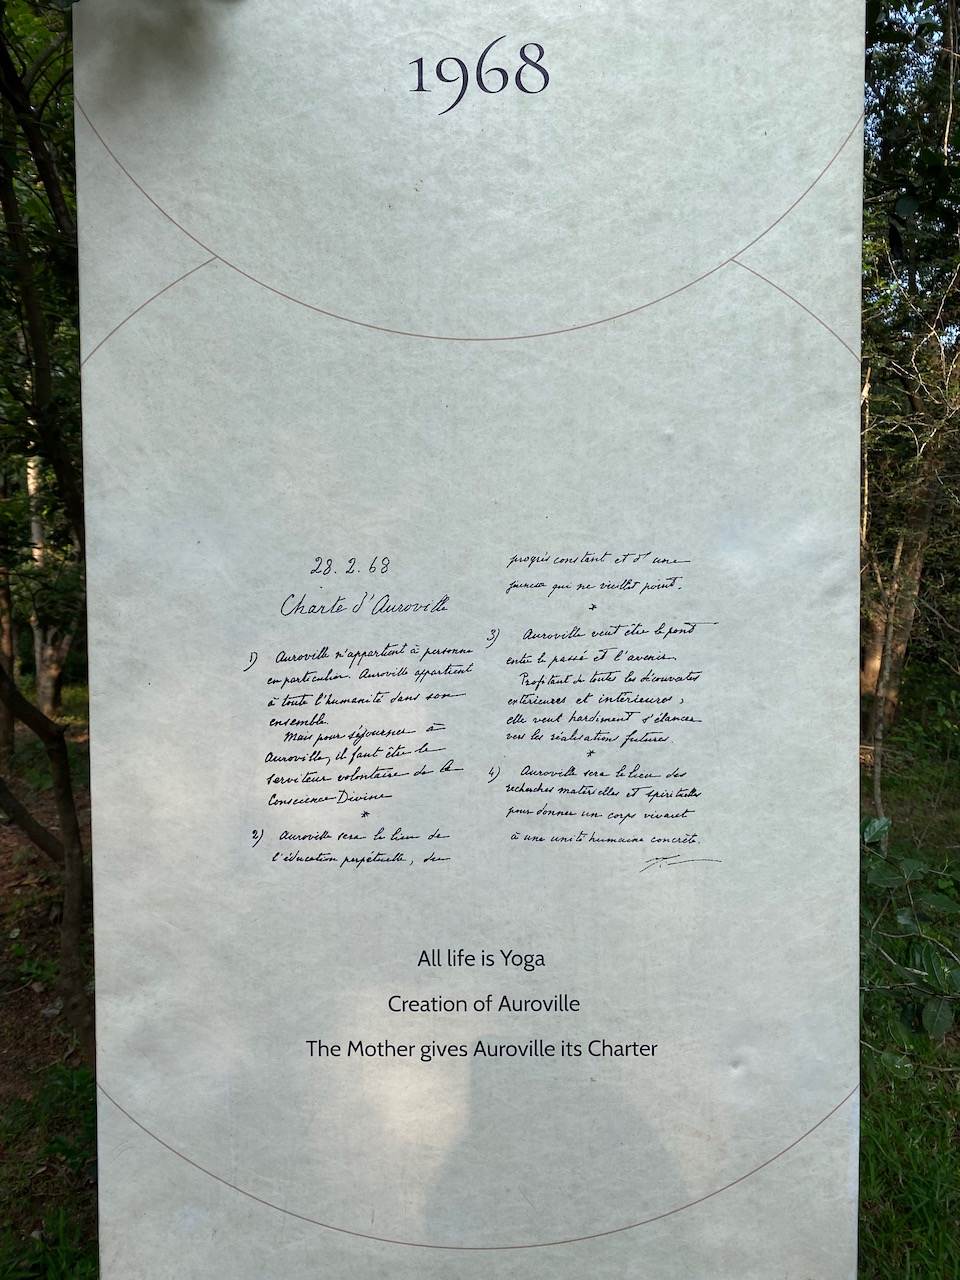 1968
28.2.68
Charte d'Auroville
1) Auroville n'appartient à personne
en particulier. Auroville appartient
à toute l'humanité dans son
ensemble.
Mais pour séjourner à
Auroville, il faut être le
serviteur volontaire de la
Conscience Divine
*
2) Auroville sera le lieu de
l'éducation perpétuelle, du
progrès constant et d'une
jeunesse qui ne vieillit point.
*
3) Auroville veut être le pont
entre le passé et l'avenir.
Profitant de toutes les découvertes
extérieures et intérieures,
elle veut hardiment s'élancer
vers les réalisations futures.
*
4) Auroville sera le lieu des
recherches matérielles et spirituelles
pour donner un corps vivant
à une unité humaine concrète.
All life is Yoga
Creation of Auroville
The Mother gives Auroville its Charter